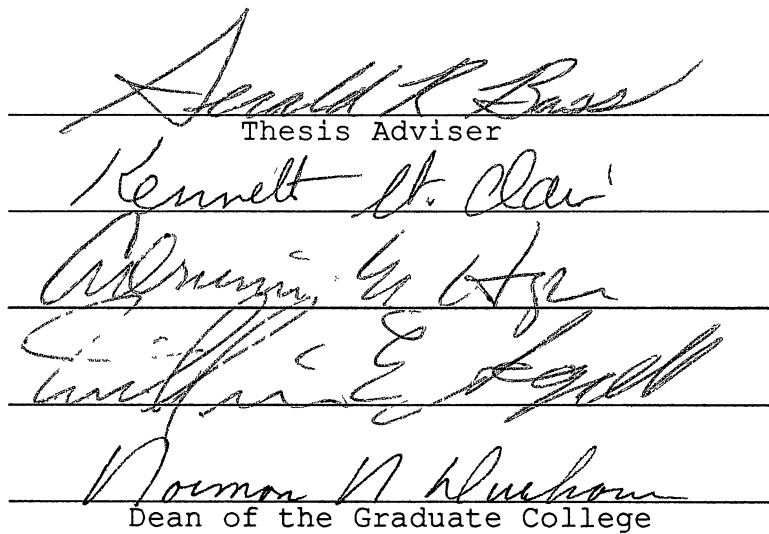 Gerald R Bass
Thesis Adviser
Kenneth St. Clair
William E. Segall
Norman N Durham
Dean of the Graduate College